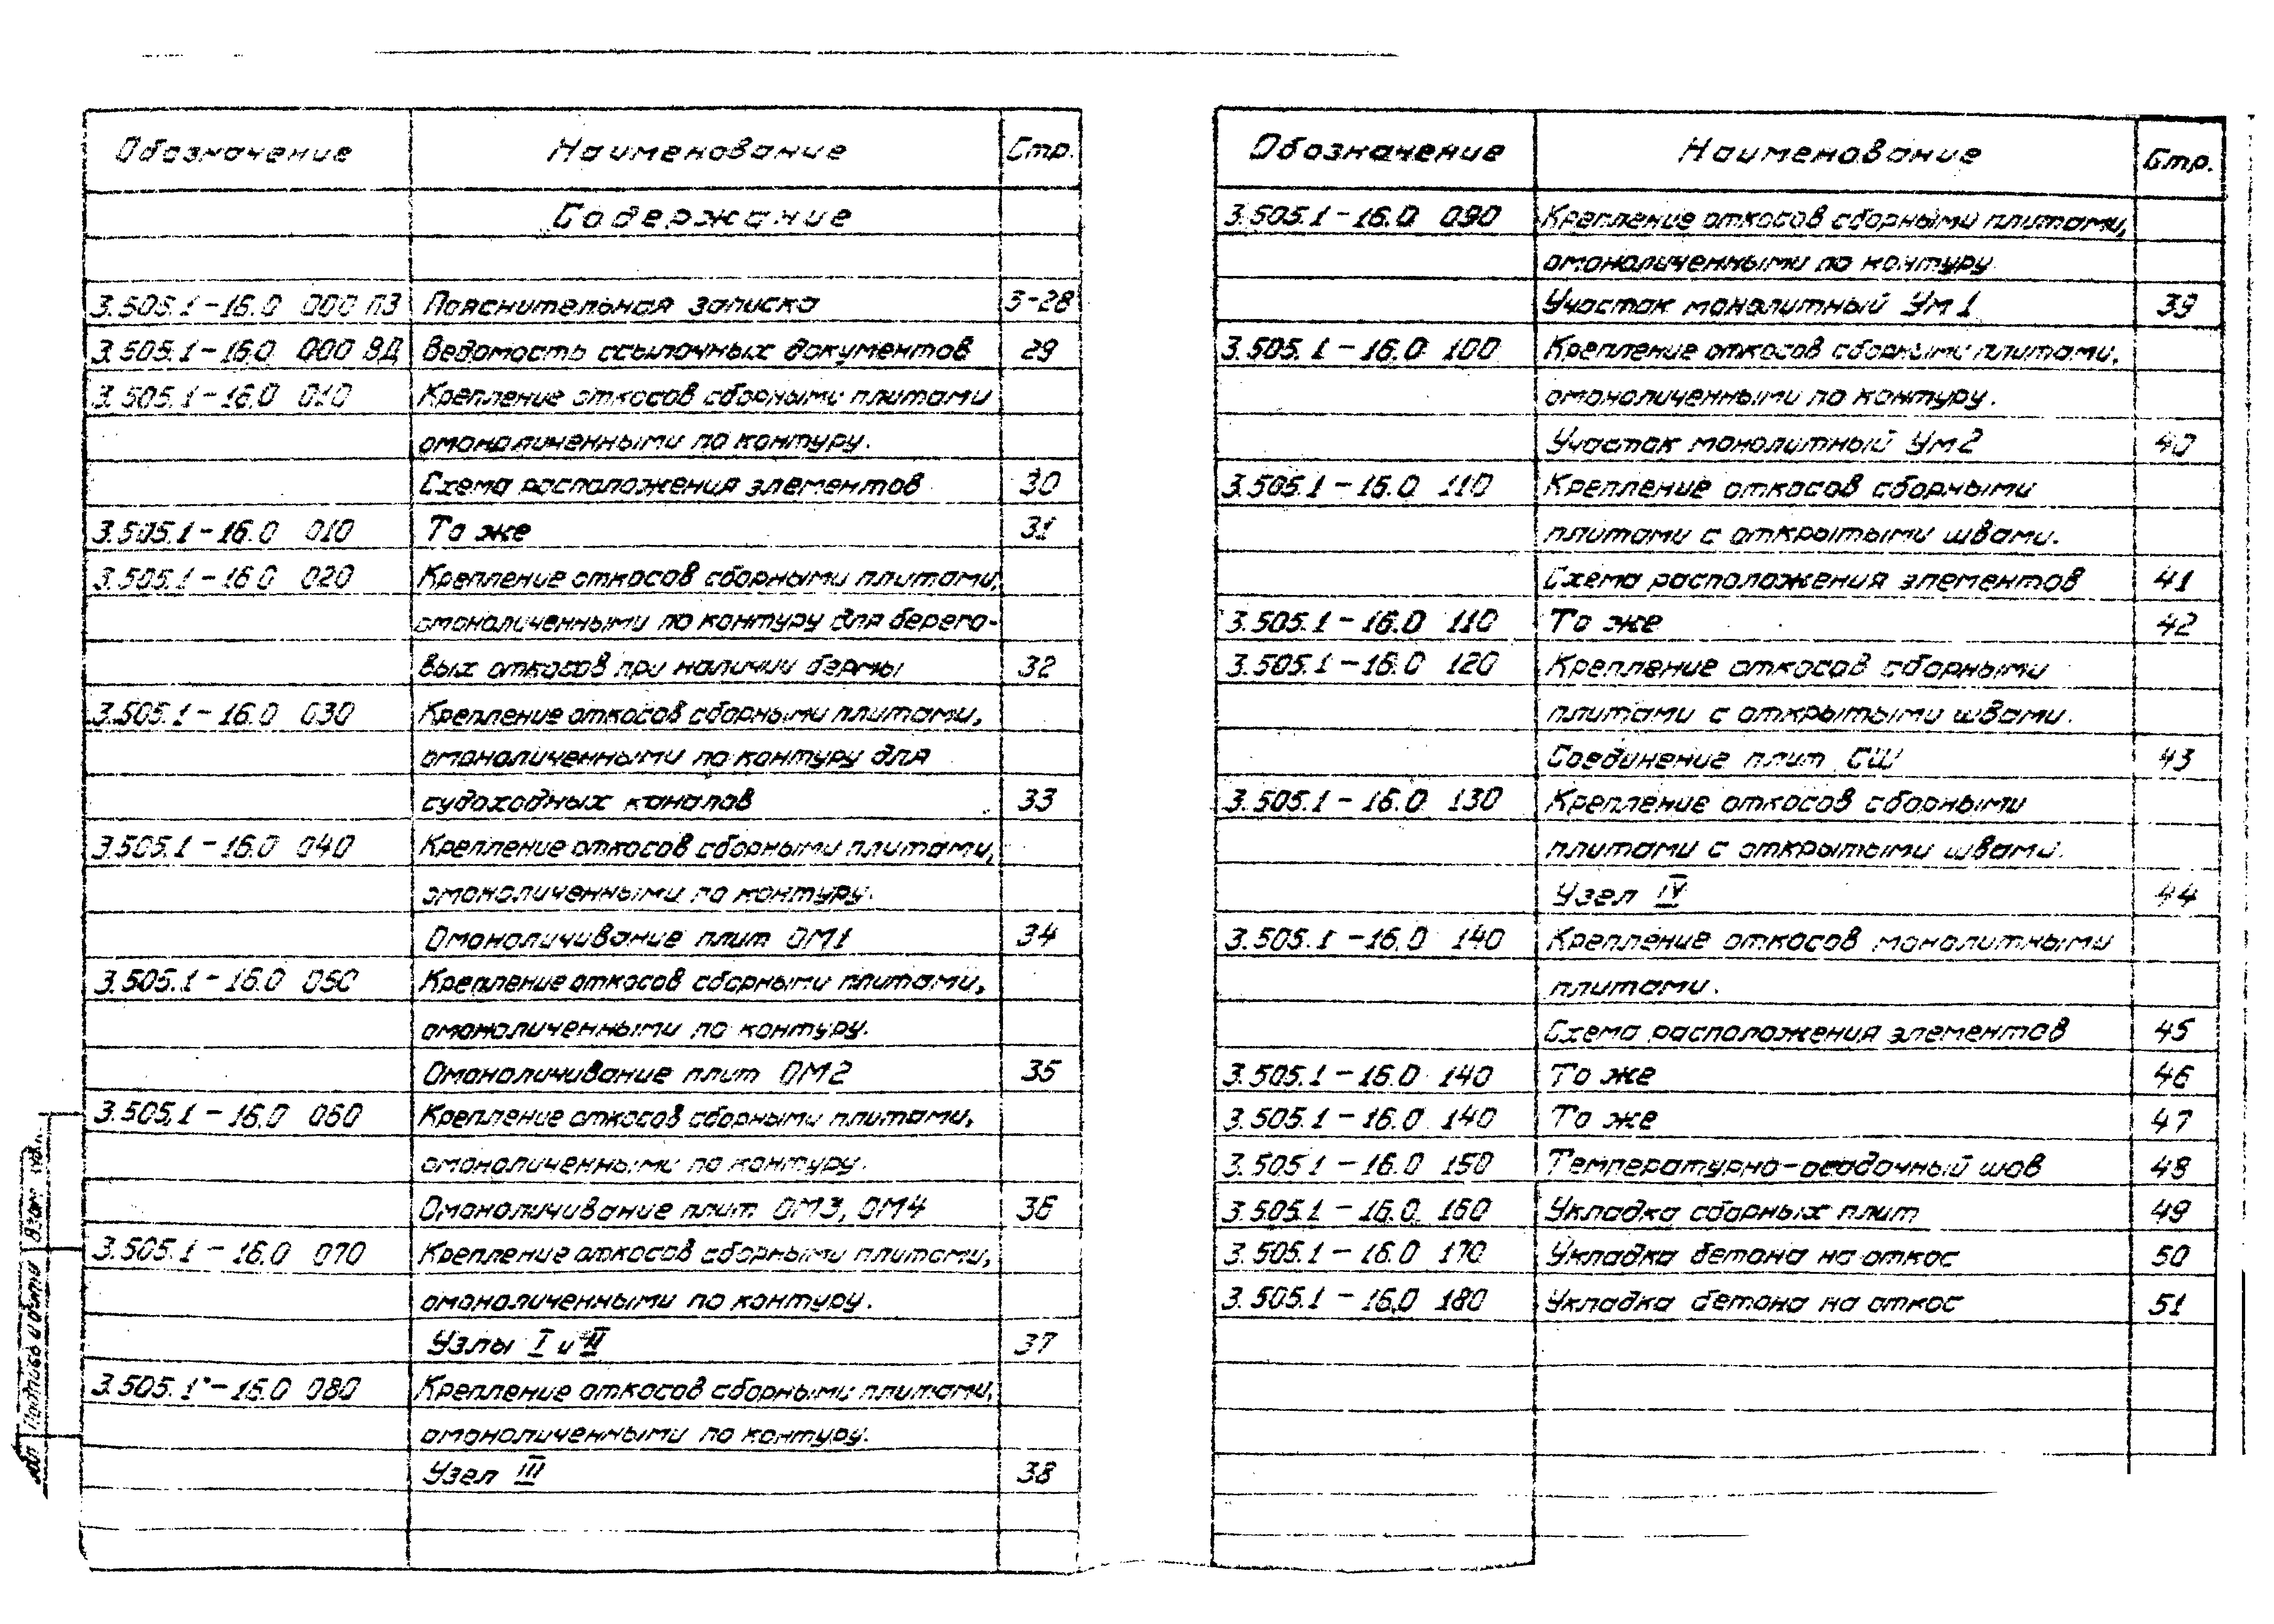 Обозначение Наименование Стр.
Содержание
3.505.1-16.0 000 ПЗ Пояснительная записка 3-28
3.505.1-16.0 000 ВД Ведомость ссылочных документов 29
3.505.1-16.0 010 Крепление откосов сборными плитами
омоноличенными по контуру.
Схема расположения элементов 30
3.505.1-16.0 010 То же 31
3.505.1-16.0 020 Крепление откосов сборными плитами,
омоноличенными по контуру для берего-
вых откосов при наличии бермы 32
3.505.1-16.0 030 Крепление откосов сборными плитами,
омоноличенными по контуру для
судоходных каналов 33
3.505.1-16.0 040 Крепление откосов сборными плитами,
омоноличенными по контуру.
Омоноличивание плит ОМ1 34
3.505.1-16.0 050 Крепление откосов сборными плитами,
омоноличенными по контуру.
Омоноличивание плит ОМ2 35
3.505.1-16.0 060 Крепление откосов сборными плитами,
омоноличенными по контуру.
Омоноличивание плит ОМ3, ОМ4 36
3.505.1-16.0 070 Крепление откосов сборными плитами,
омоноличенными по контуру.
Узлы I и II 37
3.505.1-16.0 080 Крепление откосов сборными плитами,
омоноличенными по контуру.
Узел III 38
Обозначение Наименование Стр.
3.505.1-16.0 090 Крепление откосов сборными плитами,
омоноличенными по контуру
Участок монолитный Ум1 39
3.505.1-16.0 100 Крепление откосов сборными плитами,
омоноличенными по контуру.
Участок монолитный Ум2 40
3.505.1-16.0 110 Крепление откосов сборными
плитами с открытыми швами.
Схема расположения элементов 41
3.505.1-16.0 110 То же 42
3.505.1-16.0 120 Крепление откосов сборными
плитами с открытыми швами.
Соединение плит СШ 43
3.505.1-16.0 130 Крепление откосов сборными
плитами с открытыми швами.
Узел IV 44
3.505.1-16.0 140 Крепление откосов монолитными
плитами.
Схема расположения элементов 45
3.505.1-16.0 140 То же 46
3.505.1-16.0 140 То же 47
3.505.1-16.0 150 Температурно-осадочный шов 48
3.505.1-16.0 160 Укладка сборных плит 49
3.505.1-16.0 170 Укладка бетона на откос 50
3.505.1-16.0 180 Укладка бетона на откос 51
Подпись и дата Взам. инв.